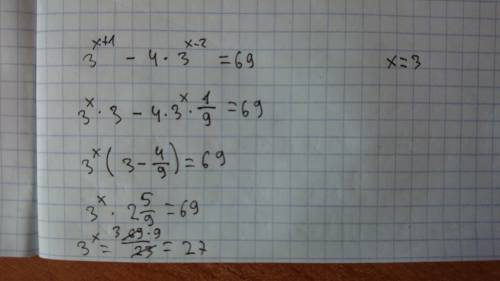 3^{x+1} - 4 · 3^{x-2} = 69
x = 3
3^x · 3 - 4 · 3^x · 1/9 = 69
3^x (3 - 4/9) = 69
3^x · 2 5/9 = 69
3^x = 3 69 · 9 / 23 = 27